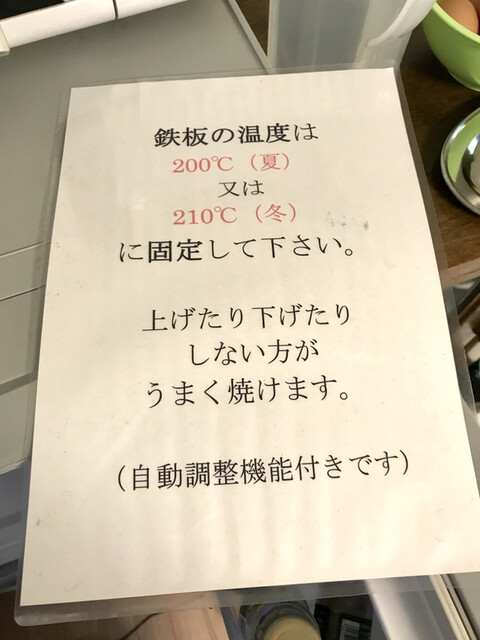 鉄板の温度は
200℃（夏）
又は
210℃（冬）
に固定して下さい。
上げたり下げたり
しない方が
うまく焼けます。
（自動調整機能付きです）